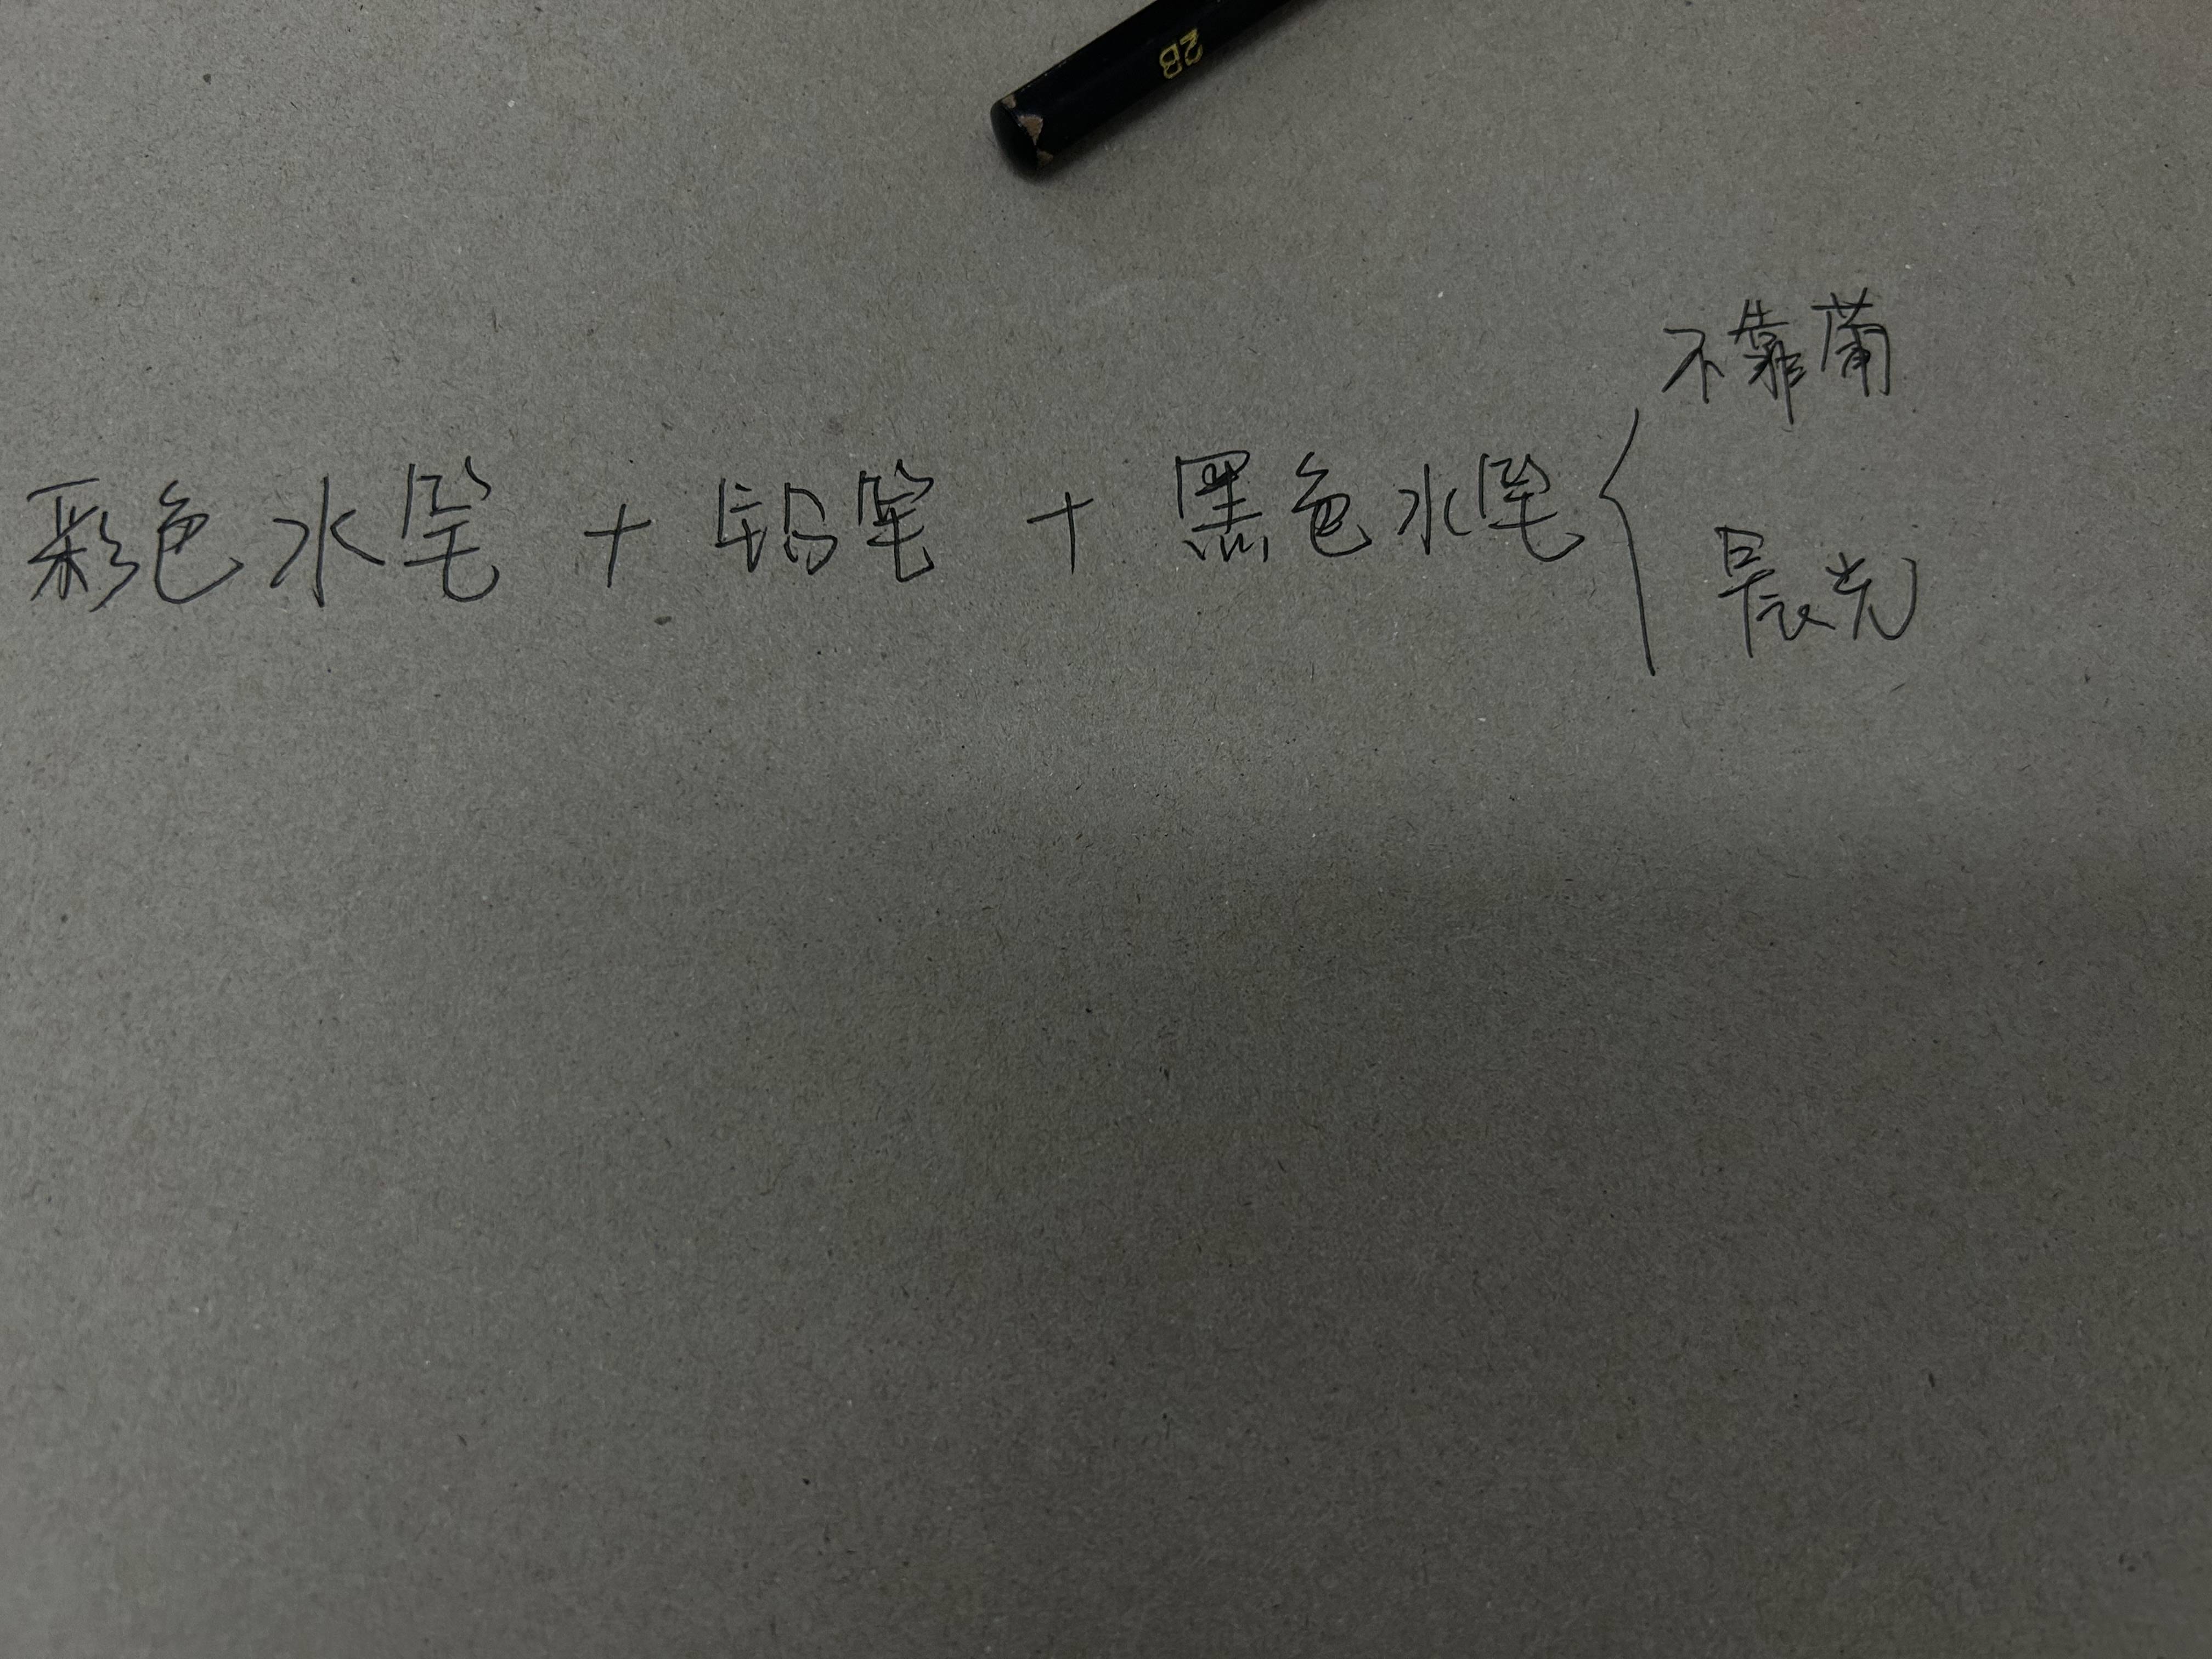 2B
不靠蒲
彩色水笔 + 铅笔 + 黑色水笔 {
晨光